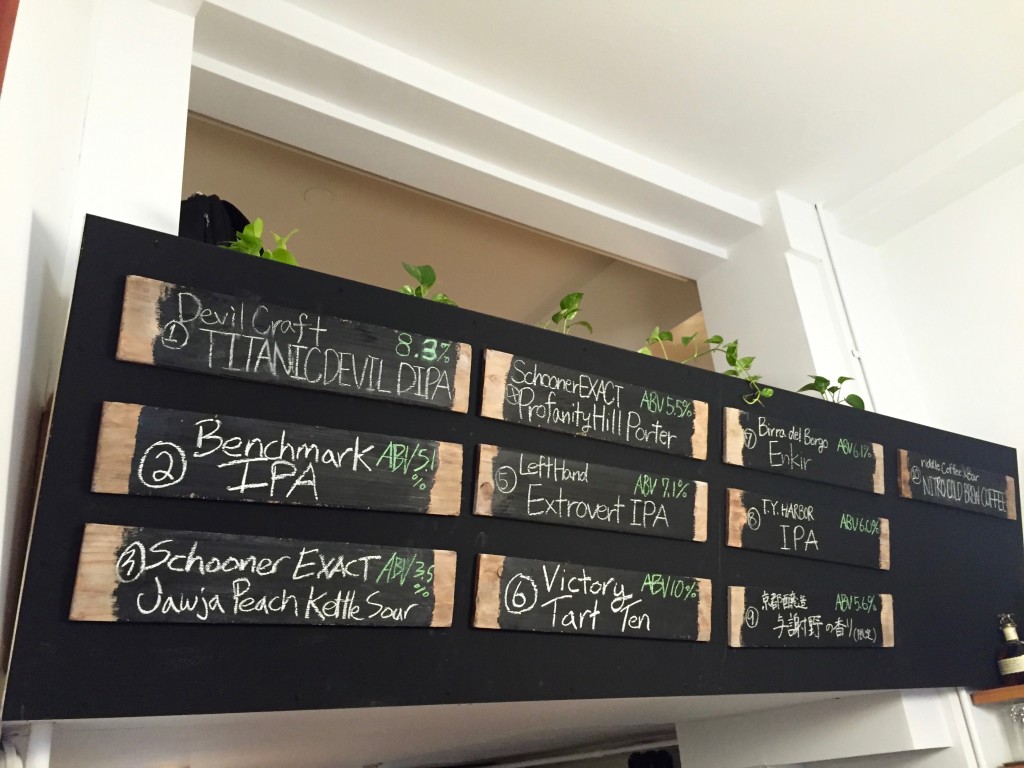 Devil Craft
① TITANIC DEVIL DIPA
8.3%
② Benchmark
IPA
ABV 5.1
%
③ Schooner EXACT
Jawja Peach Kettle Sour
ABV 3.5
%
Schooner EXACT
ABV 5.5%
④ Profanity Hill Porter
⑤ Left Hand
ABV 7.1%
Extrovert IPA
⑥ Victory
ABV 10%
Tart Ten
⑦ Birra del Borgo
ABV 6.1%
Enkir
⑧ T.Y. HARBOR
ABV 6.0%
IPA
京都醸造
ABV 5.6%
⑨ 与謝野の香り(限定)
⑩ Coffee Bar
NITRO COLD BREW COFFEE